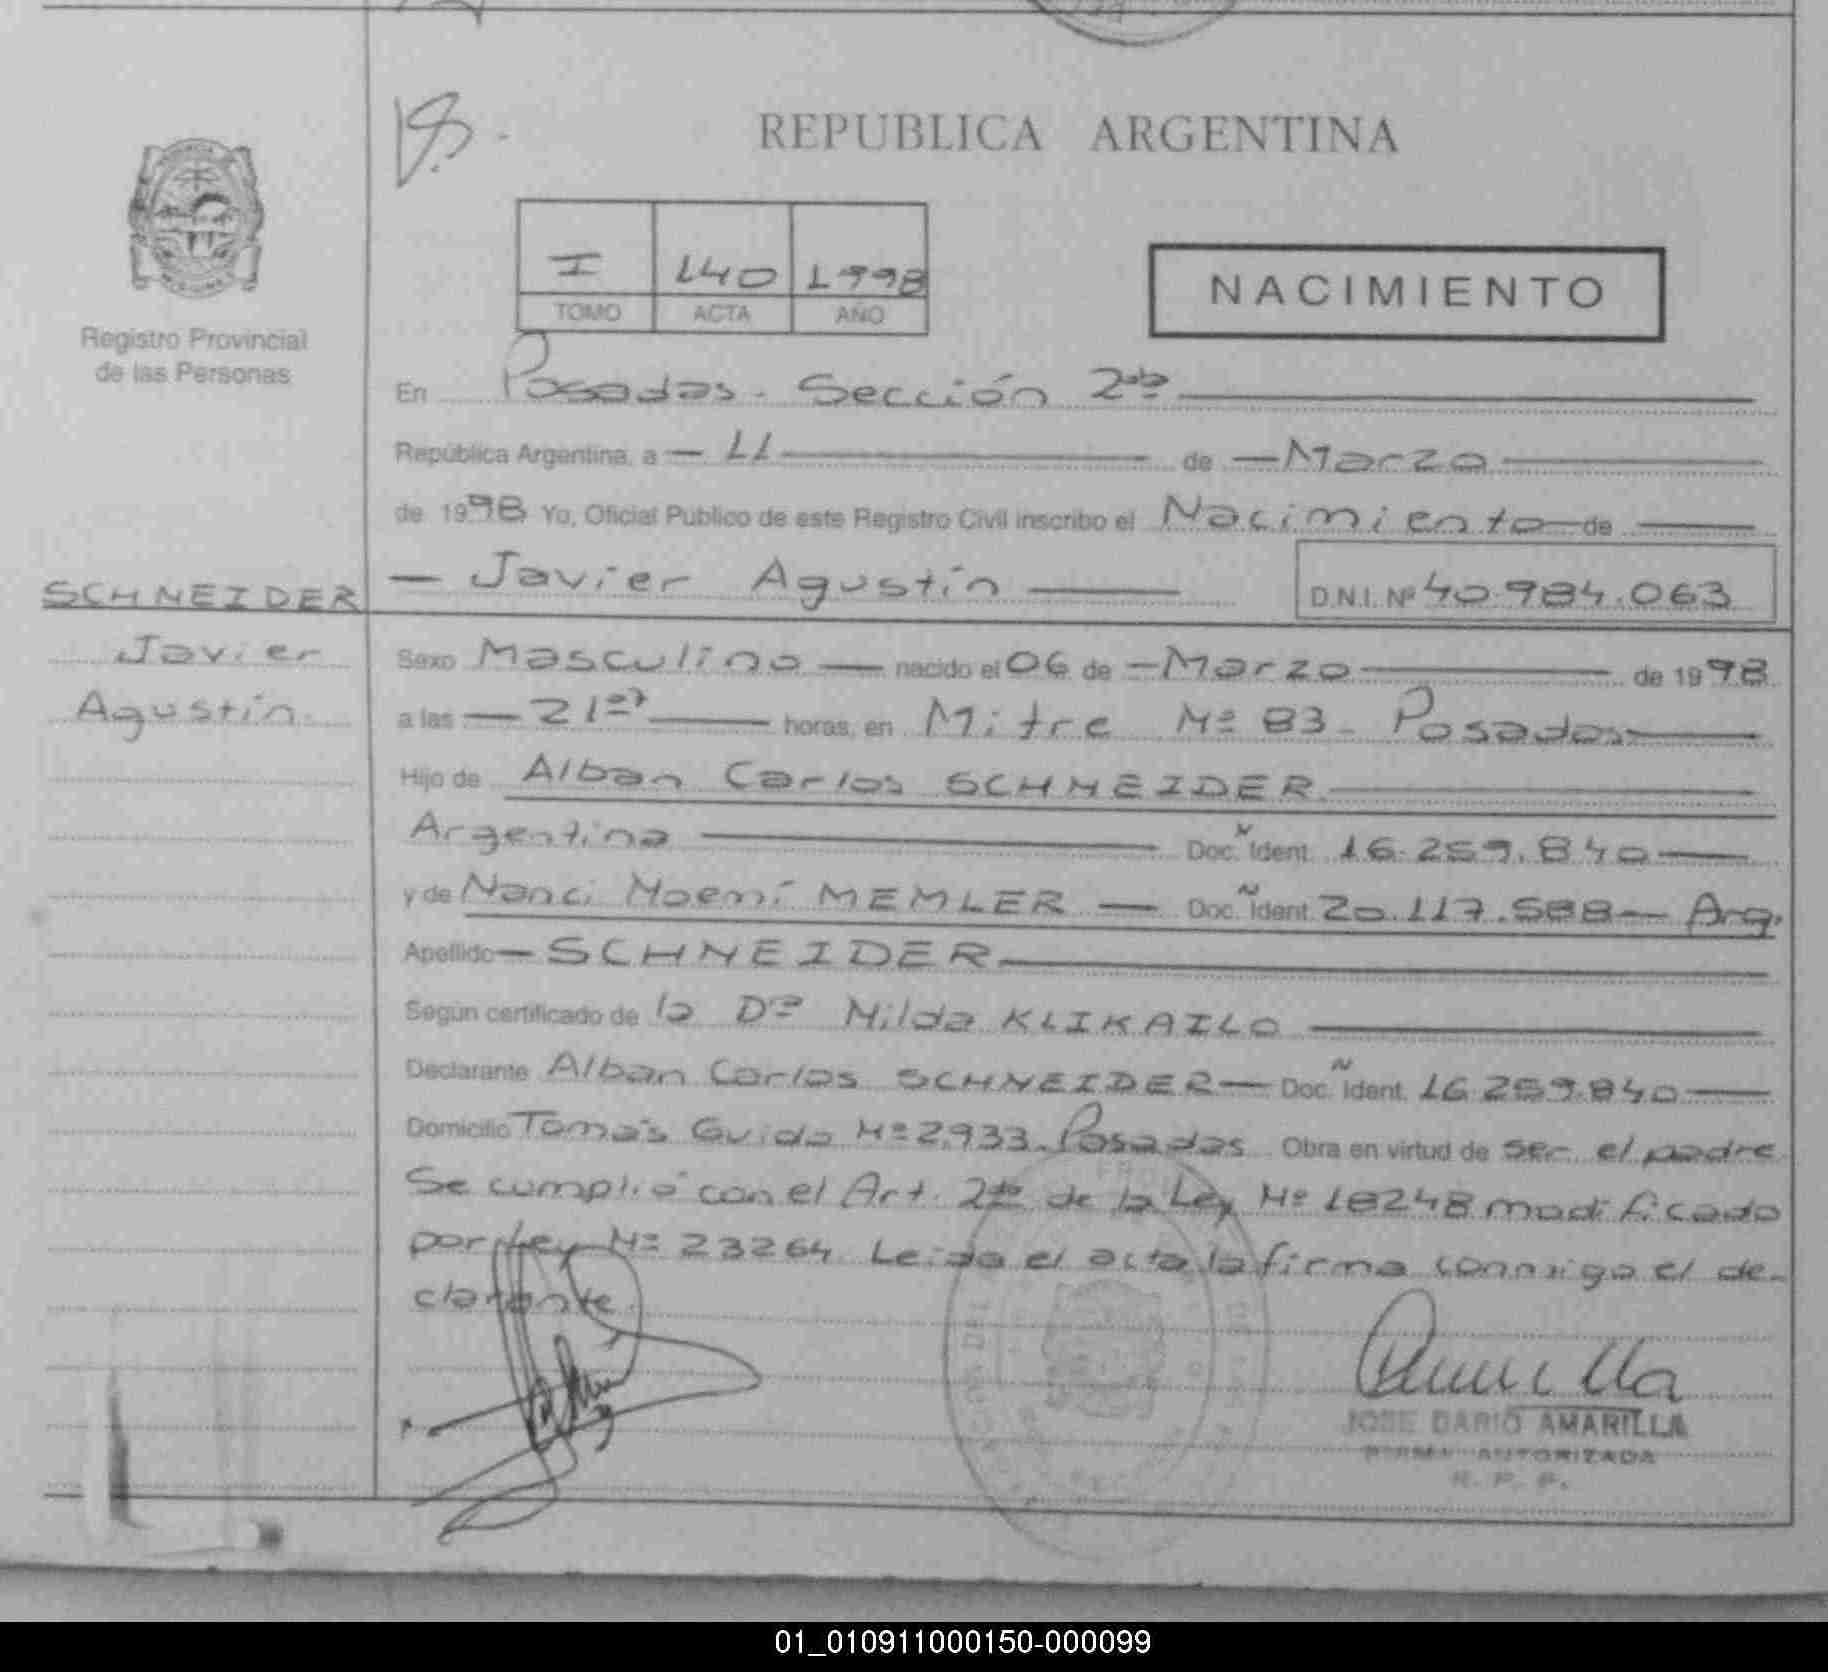 REPUBLICA ARGENTINA
I 140 1998
TOMO ACTA AÑO
NACIMIENTO
Registro Provincial
de las Personas
En Posadas - Sección 2da
República Argentina, a 11 de Marzo
de 1998 Yo, Oficial Publico de este Registro Civil inscribo el Nacimiento de
Javier Agustín D.N.I. Nº 40.984.063
SCHNEIDER
Javier
Agustín
Sexo Masculino nacido el 06 de Marzo de 1998
a las 21 horas, en Mitre Nº 83 - Posadas
Hijo de Alban Carlos SCHNEIDER
Argentina Doc. Ident. 16.259.840
y de Nanci Noemí MEMLER Doc. Ident. 20.117.588 - Arg.
Apellido SCHNEIDER
Según certificado de la Dra Nilda KLIKAILO
Declarante Alban Carlos SCHNEIDER Doc. Ident. 16.259.840
Domicilio Tomás Guido Nº 2.933 - Posadas Obra en virtud de ser el padre
Se cumplió con el Art. 2do de la Ley Nº 18248 modificado
por Ley Nº 23264. Leida el acta la firma conmigo el de-
clarante.
JOSE DARIO AMARILLA
FIRMA AUTORIZADA
R. P. P.
01_010911000150-000099